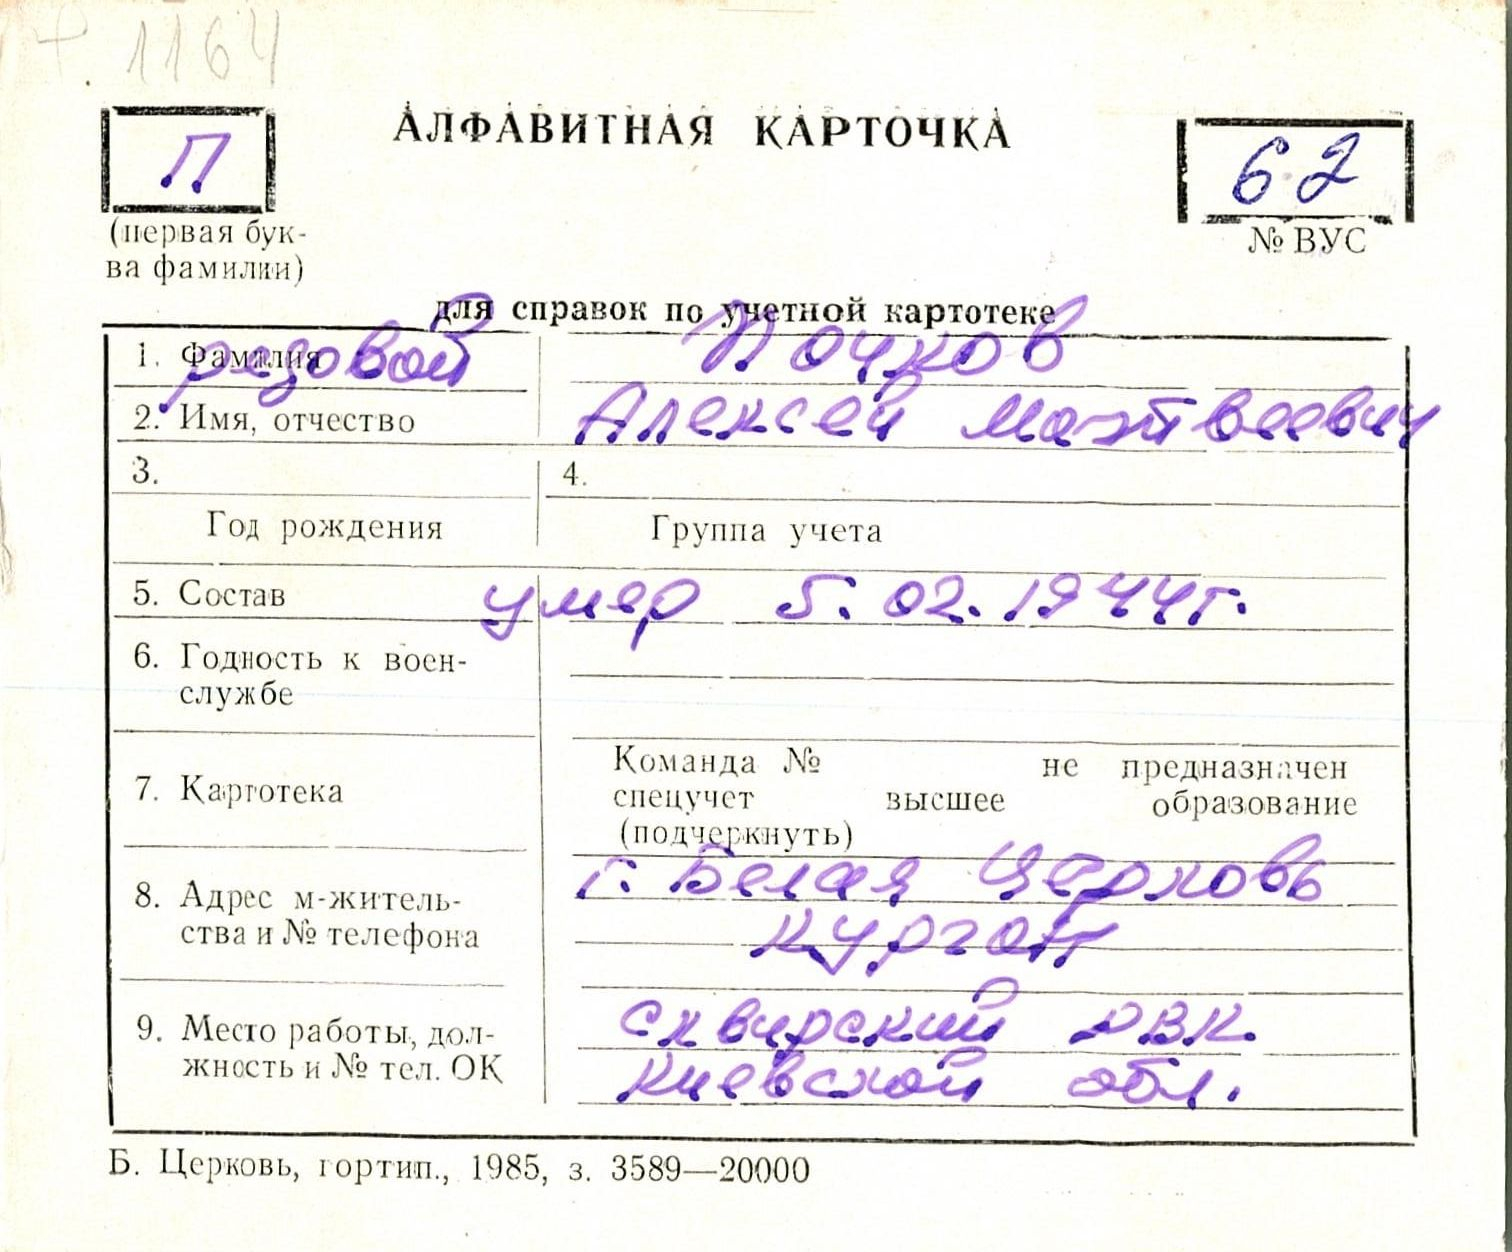 т. 1164
П
АЛФАВИТНАЯ КАРТОЧКА
62
(первая бук-
ва фамилии)
№ ВУС
для справок по учетной картотеке
1. Фамилия
рядовой
Почков
2. Имя, отчество
Алексей Матвеевич
3.
4.
Год рождения
Группа учета
5. Состав
умер 5.02.1944г.
6. Годность к воен-
службе
7. Картотека
Команда № не предназначен
спецучет высшее образование
(подчеркнуть)
8. Адрес м-житель-
ства и № телефона
г. Белая Церковь
курган
9. Место работы, дол-
жность и № тел. ОК
Сквирский РВК.
Киевской обл.
Б. Церковь, гортип., 1985, з. 3589—20000